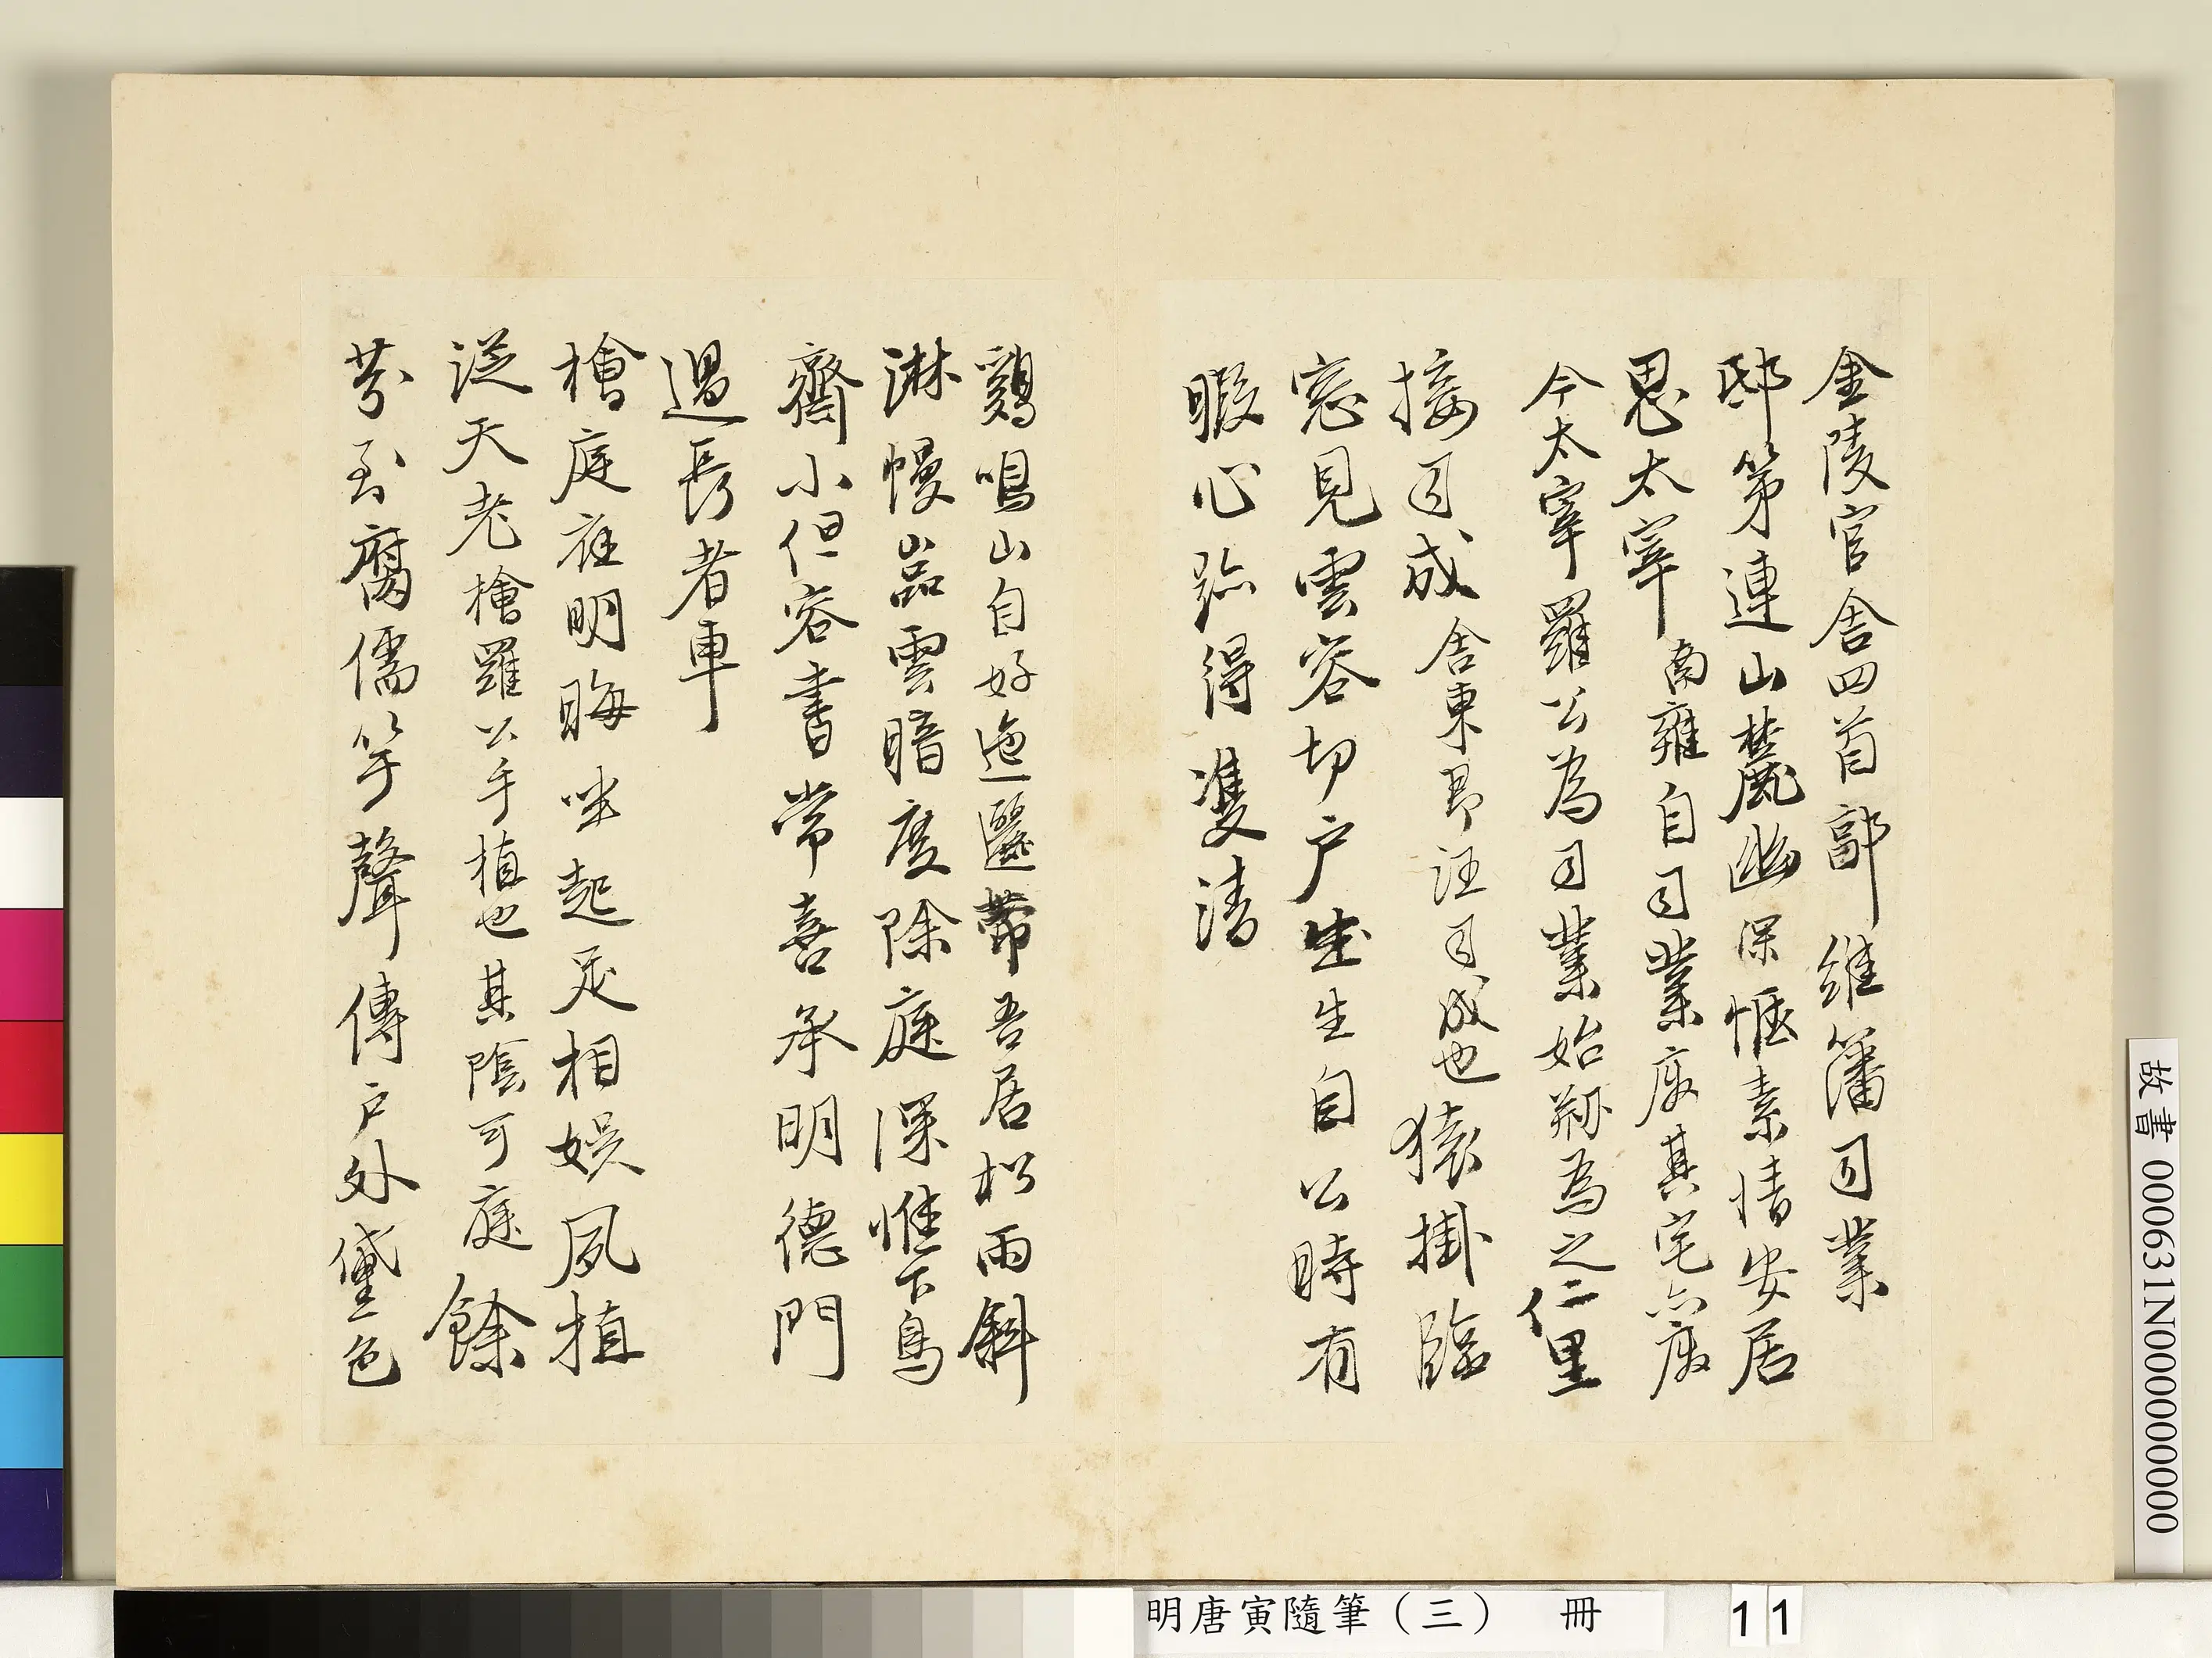 金陵官舍四首郭維藩司業
邸第連山麓幽深愜素情安居
思太宰南雍自司業廨其宅亦廨
今太宰羅公為司業始剏為之仁里
接司成舍東即汪司成也猿掛臨
窓見雲容切户生自公時有
暇心跡得雙清
鷄鳴山自好迤邐帶吾居松雨斜
淋幔嵓雲暗度除庭深惟下鳥
齋小但容書常喜承明德門
過長者車
檜庭庭明晦坐起足相娛夙植
從天老檜羅公手植也其陰可庭餘
芬到腐儒竽聲傳户外黛色
故書 000631N000000000
明唐寅隨筆（三） 冊 11